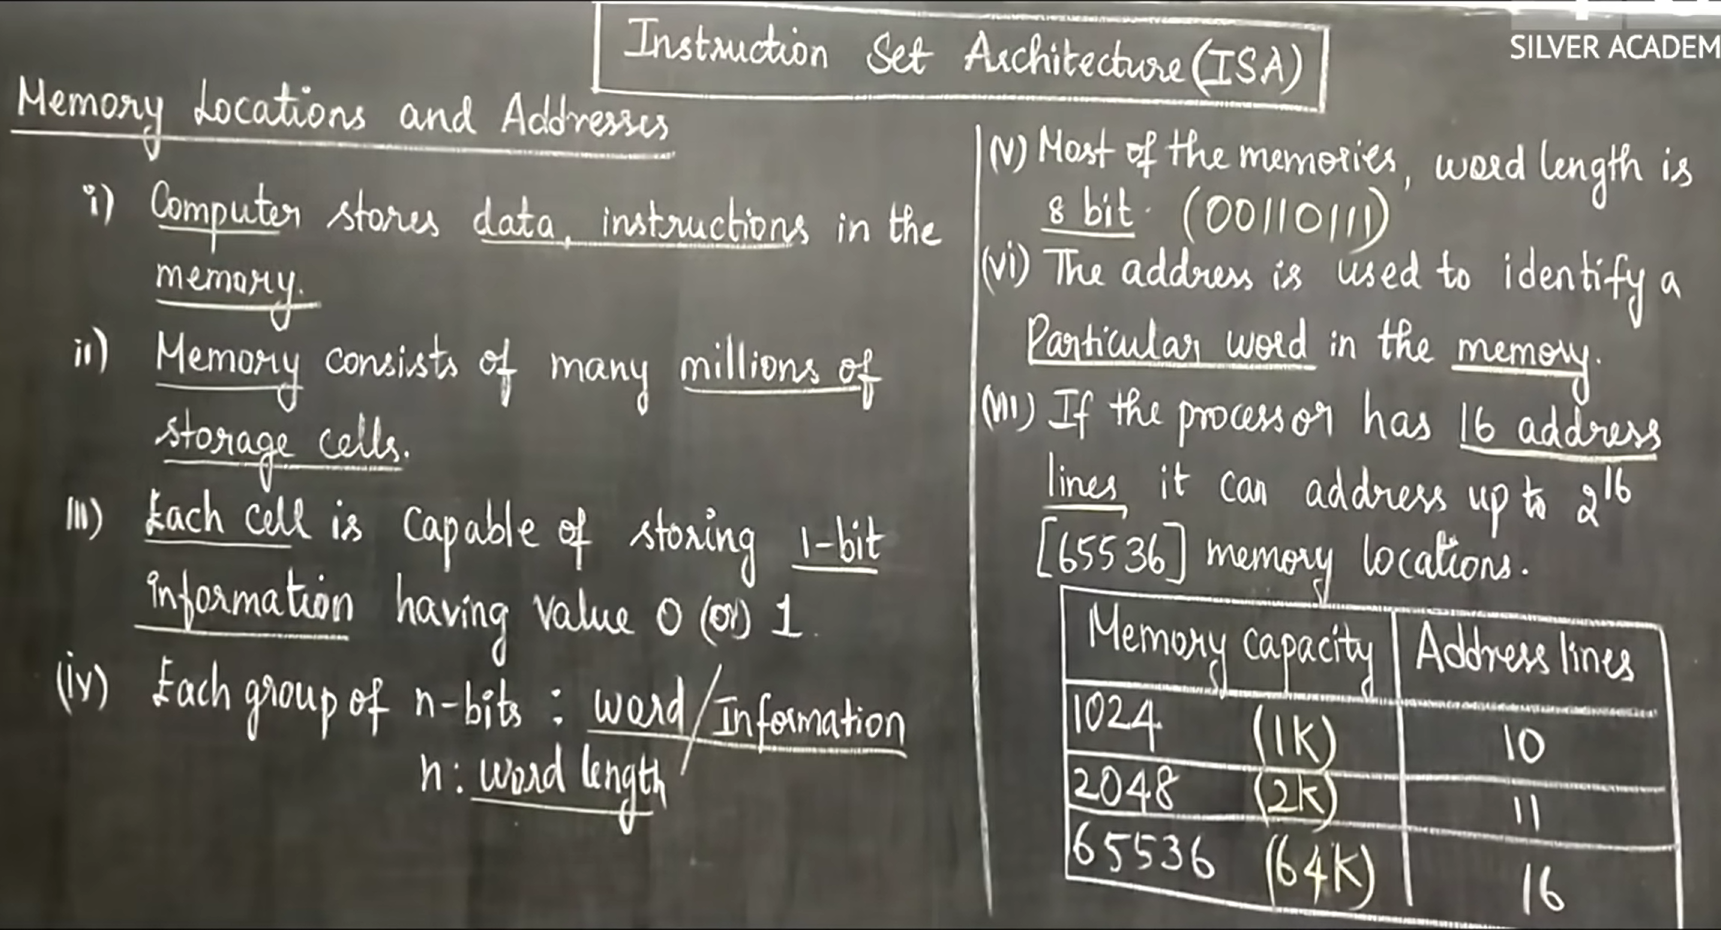 Instruction Set Architecture (ISA)
SILVER ACADEM
Memory Locations and Addresses
i) Computer stores data, instructions in the
memory.
ii) Memory consists of many millions of
storage cells.
iii) Each cell is capable of storing 1-bit
information having value 0 (or) 1.
(iv) Each group of n-bits : word/Information
n : word length
(v) Most of the memories, word length is
8 bit. (00110111)
(vi) The address is used to identify a
Particular word in the memory.
(vii) If the processor has 16 address
lines it can address up to 2^16
[65536] memory locations.
Memory capacity Address lines
1024 (1K) 10
2048 (2K) 11
65536 (64K) 16